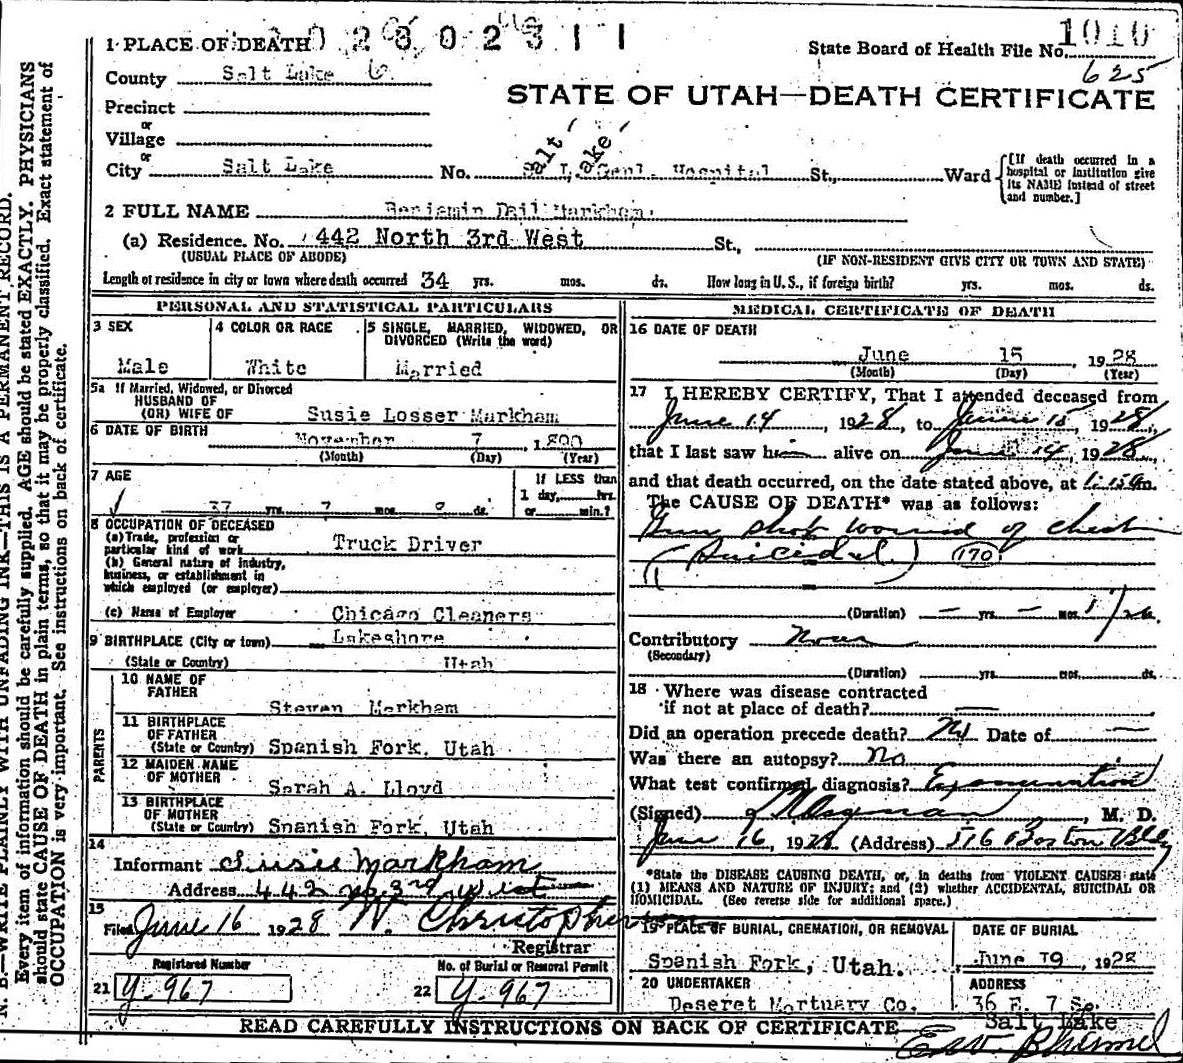 1 PLACE OF DEATH 0 2 8 0 2 3 1 1
State Board of Health File No. 1010
625
County Salt Lake 6
STATE OF UTAH—DEATH CERTIFICATE
Precinct
or
Village
or
City Salt Lake No. Salt Lake Genl. Hospital St., Ward
[If death occurred in a hospital or institution give its NAME instead of street and number.]
2 FULL NAME Benjamin Dail Markham
(a) Residence. No. 442 North 3rd West St.,
(USUAL PLACE OF ABODE) (IF NON-RESIDENT GIVE CITY OR TOWN AND STATE)
Length of residence in city or town where death occurred 34 yrs. mos. ds. How long in U. S., if foreign birth? yrs. mos. ds.
PERSONAL AND STATISTICAL PARTICULARS
3 SEX
Male
4 COLOR OR RACE
White
5 SINGLE, MARRIED, WIDOWED, OR
DIVORCED (Write the word)
Married
5a If Married, Widowed, or Divorced
HUSBAND OF
(OR) WIFE OF Susie Losser Markham
6 DATE OF BIRTH
November 7, 1890
(Month) (Day) (Year)
7 AGE
37 yrs. 7 mos. ds.
If LESS than
1 day, hrs.
or min.?
8 OCCUPATION OF DECEASED
(a) Trade, profession or
particular kind of work Truck Driver
(b) General nature of industry,
business, or establishment in
which employed (or employer)
(c) Name of Employer Chicago Cleaners
9 BIRTHPLACE (City or town) Lakeshore
(State or Country) Utah
PARENTS
10 NAME OF
FATHER
Steven Markham
11 BIRTHPLACE
OF FATHER
(State or Country) Spanish Fork, Utah
12 MAIDEN NAME
OF MOTHER
Sarah A. Lloyd
13 BIRTHPLACE
OF MOTHER
(State or Country) Spanish Fork, Utah
14
Informant Susie Markham
Address 442 No 3rd West
15
Filed June 16 1928 W. Christopherson
Registrar
Registered Number No. of Burial or Removal Permit
21 Y-967 22 Y-967
MEDICAL CERTIFICATE OF DEATH
16 DATE OF DEATH
June 15, 1928
(Month) (Day) (Year)
17 I HEREBY CERTIFY, That I attended deceased from
June 14, 1928, to June 15, 1928,
that I last saw him alive on June 14, 1928,
and that death occurred, on the date stated above, at 1:15 a m.
The CAUSE OF DEATH* was as follows:
Gun shot wound of chest
(Suicidal) 170
(Duration) — yrs. — mos. 1/26
Contributory None
(Secondary)
(Duration) yrs. mos. ds.
18 Where was disease contracted
if not at place of death? —
Did an operation precede death? No Date of —
Was there an autopsy? No
What test confirmed diagnosis? Examination
(Signed) , M. D.
June 16, 1928 (Address) 516 Boston Bldg
*State the DISEASE CAUSING DEATH, or, in deaths from VIOLENT CAUSES state
(1) MEANS AND NATURE OF INJURY; and (2) whether ACCIDENTAL, SUICIDAL OR
HOMICIDAL. (See reverse side for additional space.)
19 PLACE OF BURIAL, CREMATION, OR REMOVAL
Spanish Fork, Utah.
DATE OF BURIAL
June 19, 1928
20 UNDERTAKER
Deseret Mortuary Co.
ADDRESS
36 E. 7 So.
Salt Lake
READ CAREFULLY INSTRUCTIONS ON BACK OF CERTIFICATE
N. B.—WRITE PLAINLY WITH UNFADING INK—THIS IS A PERMANENT RECORD.
Every item of information should be carefully supplied. AGE should be stated EXACTLY. PHYSICIANS
should state CAUSE OF DEATH in plain terms, so that it may be properly classified. Exact statement of
OCCUPATION is very important. See instructions on back of certificate.